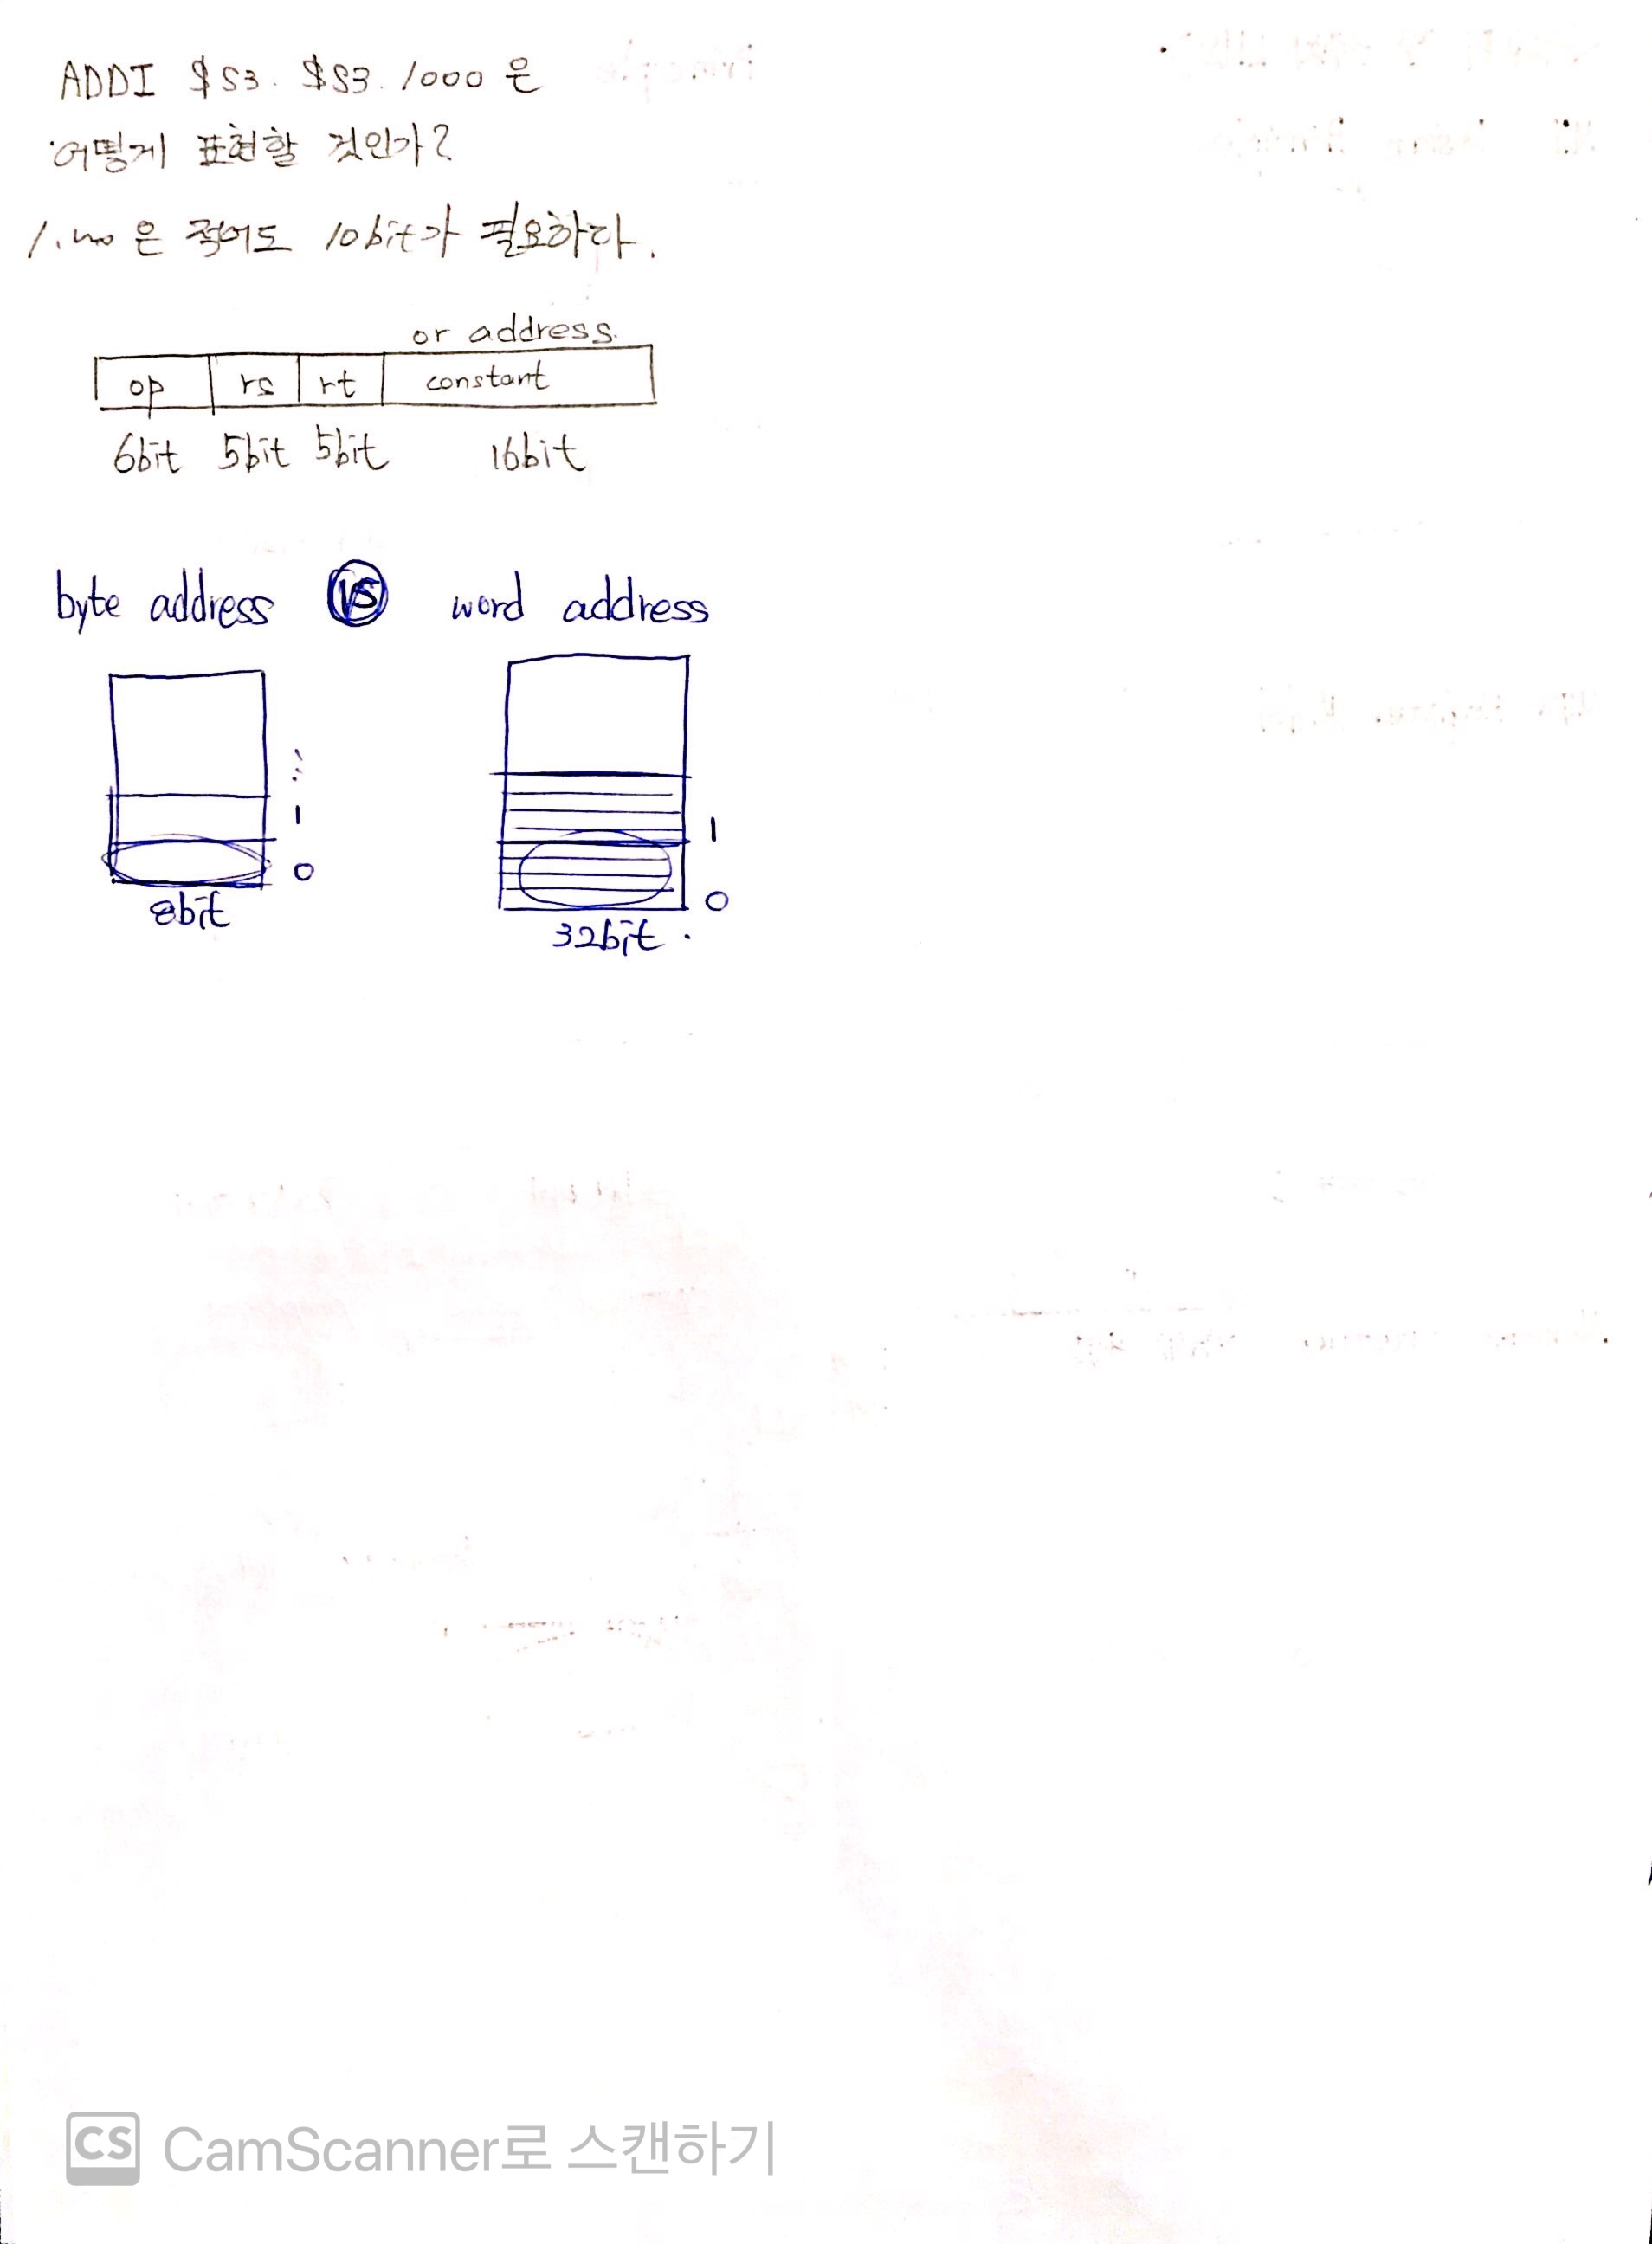 ADDI $S3. $S3. 1000 은
어떻게 표현할 것인가?
은 적어도 10bit가 필요하다.
or address.
op rs rt constant
6bit 5bit 5bit 16bit
byte address VS word address
1
0
8bit
1
0
32bit
CS CamScanner로 스캔하기